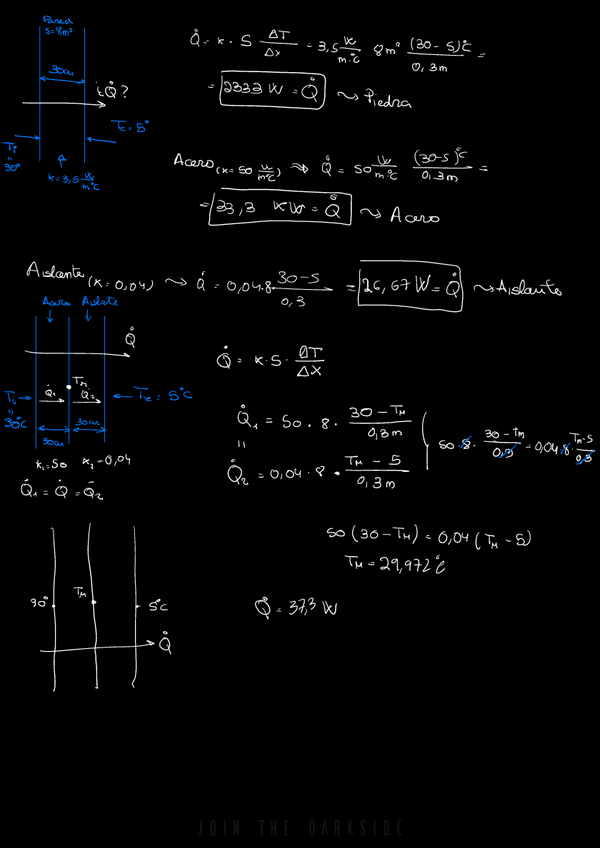 Pared
S=8m²
30cm
¿Q̇?
Te=5°
Ti
"
30°
k=3,5 W/m°C
Q̇ = k · S ΔT/Δx = 3,5 W/m·°C 8m² (30-5)°C/0,3m =
= 2333 W = Q̇ ⤳ Piedra
Acero (k=50 W/m°C) ⤳ Q̇ = 50 W/m°C (30-5)°C/0,3m =
= 33,3 kW = Q̇ ⤳ Acero
Aislante (k=0,04) ⤳ Q̇ = 0,04·8 30-5/0,3 = 26,67 W = Q̇ ⤳ Aislante
Acero Aislate
Q̇
Q̇₁ TM Q̇₂
Ti
"
30°C
Te = 5°C
30cm 30cm
k₁=50 k₂=0,04
Q̇₁ = Q̇ = Q̇₂
Q̇ = k·S· ΔT/ΔX
Q̇₁ = 50 · 8 · 30-TM/0,3m
"
Q̇₂ = 0,04 · 8 · TM-5/0,3m
50·8· 30-TM/0,3 = 0,04·8· TM-5/0,3
50 (30-TM) = 0,04 (TM-5)
TM = 29,972°C
30° TM 5°C
Q̇
Q̇ = 37,3 W
JOIN THE DARKSIDE